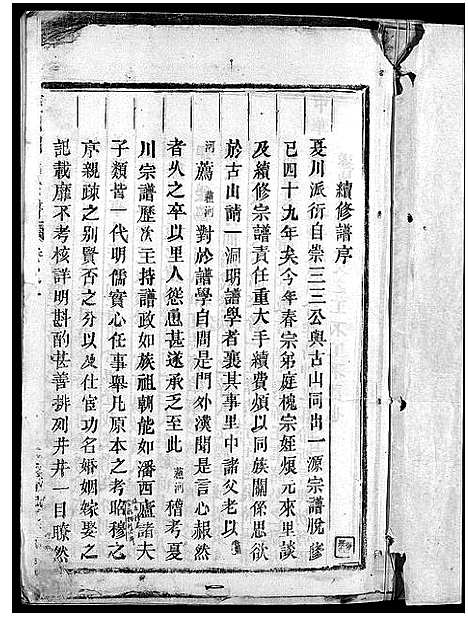 續修譜序
夏川派衍自崇三三公與古山同出一源宗譜脫修
已四十九年矣今年春宗弟庭槐宗姪煩元來里談
及續修宗譜責任重大手續費煩以同族關係思欲
於古山請一洞明譜學者襄其事里中諸父老以
河薦蓮河對於譜學自問是門外漢聞是言心赧然
者久之卒以里人慫恿甚遂承乏至此蓮河稽考夏
川宗譜歷次主持譜政如族祖朝能如潘西廬諸夫
子類皆一代明儒實心任事舉凡原本之考昭穆之
序親疎之別賢否之分以及仕宦功名婚姻嫁娶之
記載靡不考核詳明斟酌甚善排列井井一目瞭然